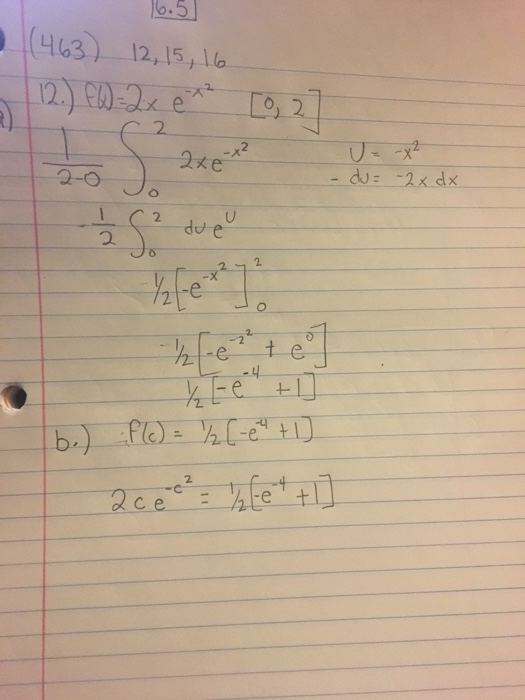 16.5
(463) 12, 15, 16
12.) f(x)=2x e^-x² [0, 2]
a)
1/2-0 ∫₀² 2xe^-x² U = -x²
- du = -2x dx
-1/2 ∫₀² du e^u
½[-e^-x²]₀²
½[-e^-2² + e⁰]
½[-e^-4 + 1]
b.) f(c) = ½[-e^-4 + 1]
2ce^-c² = ½[-e^-4 + 1]